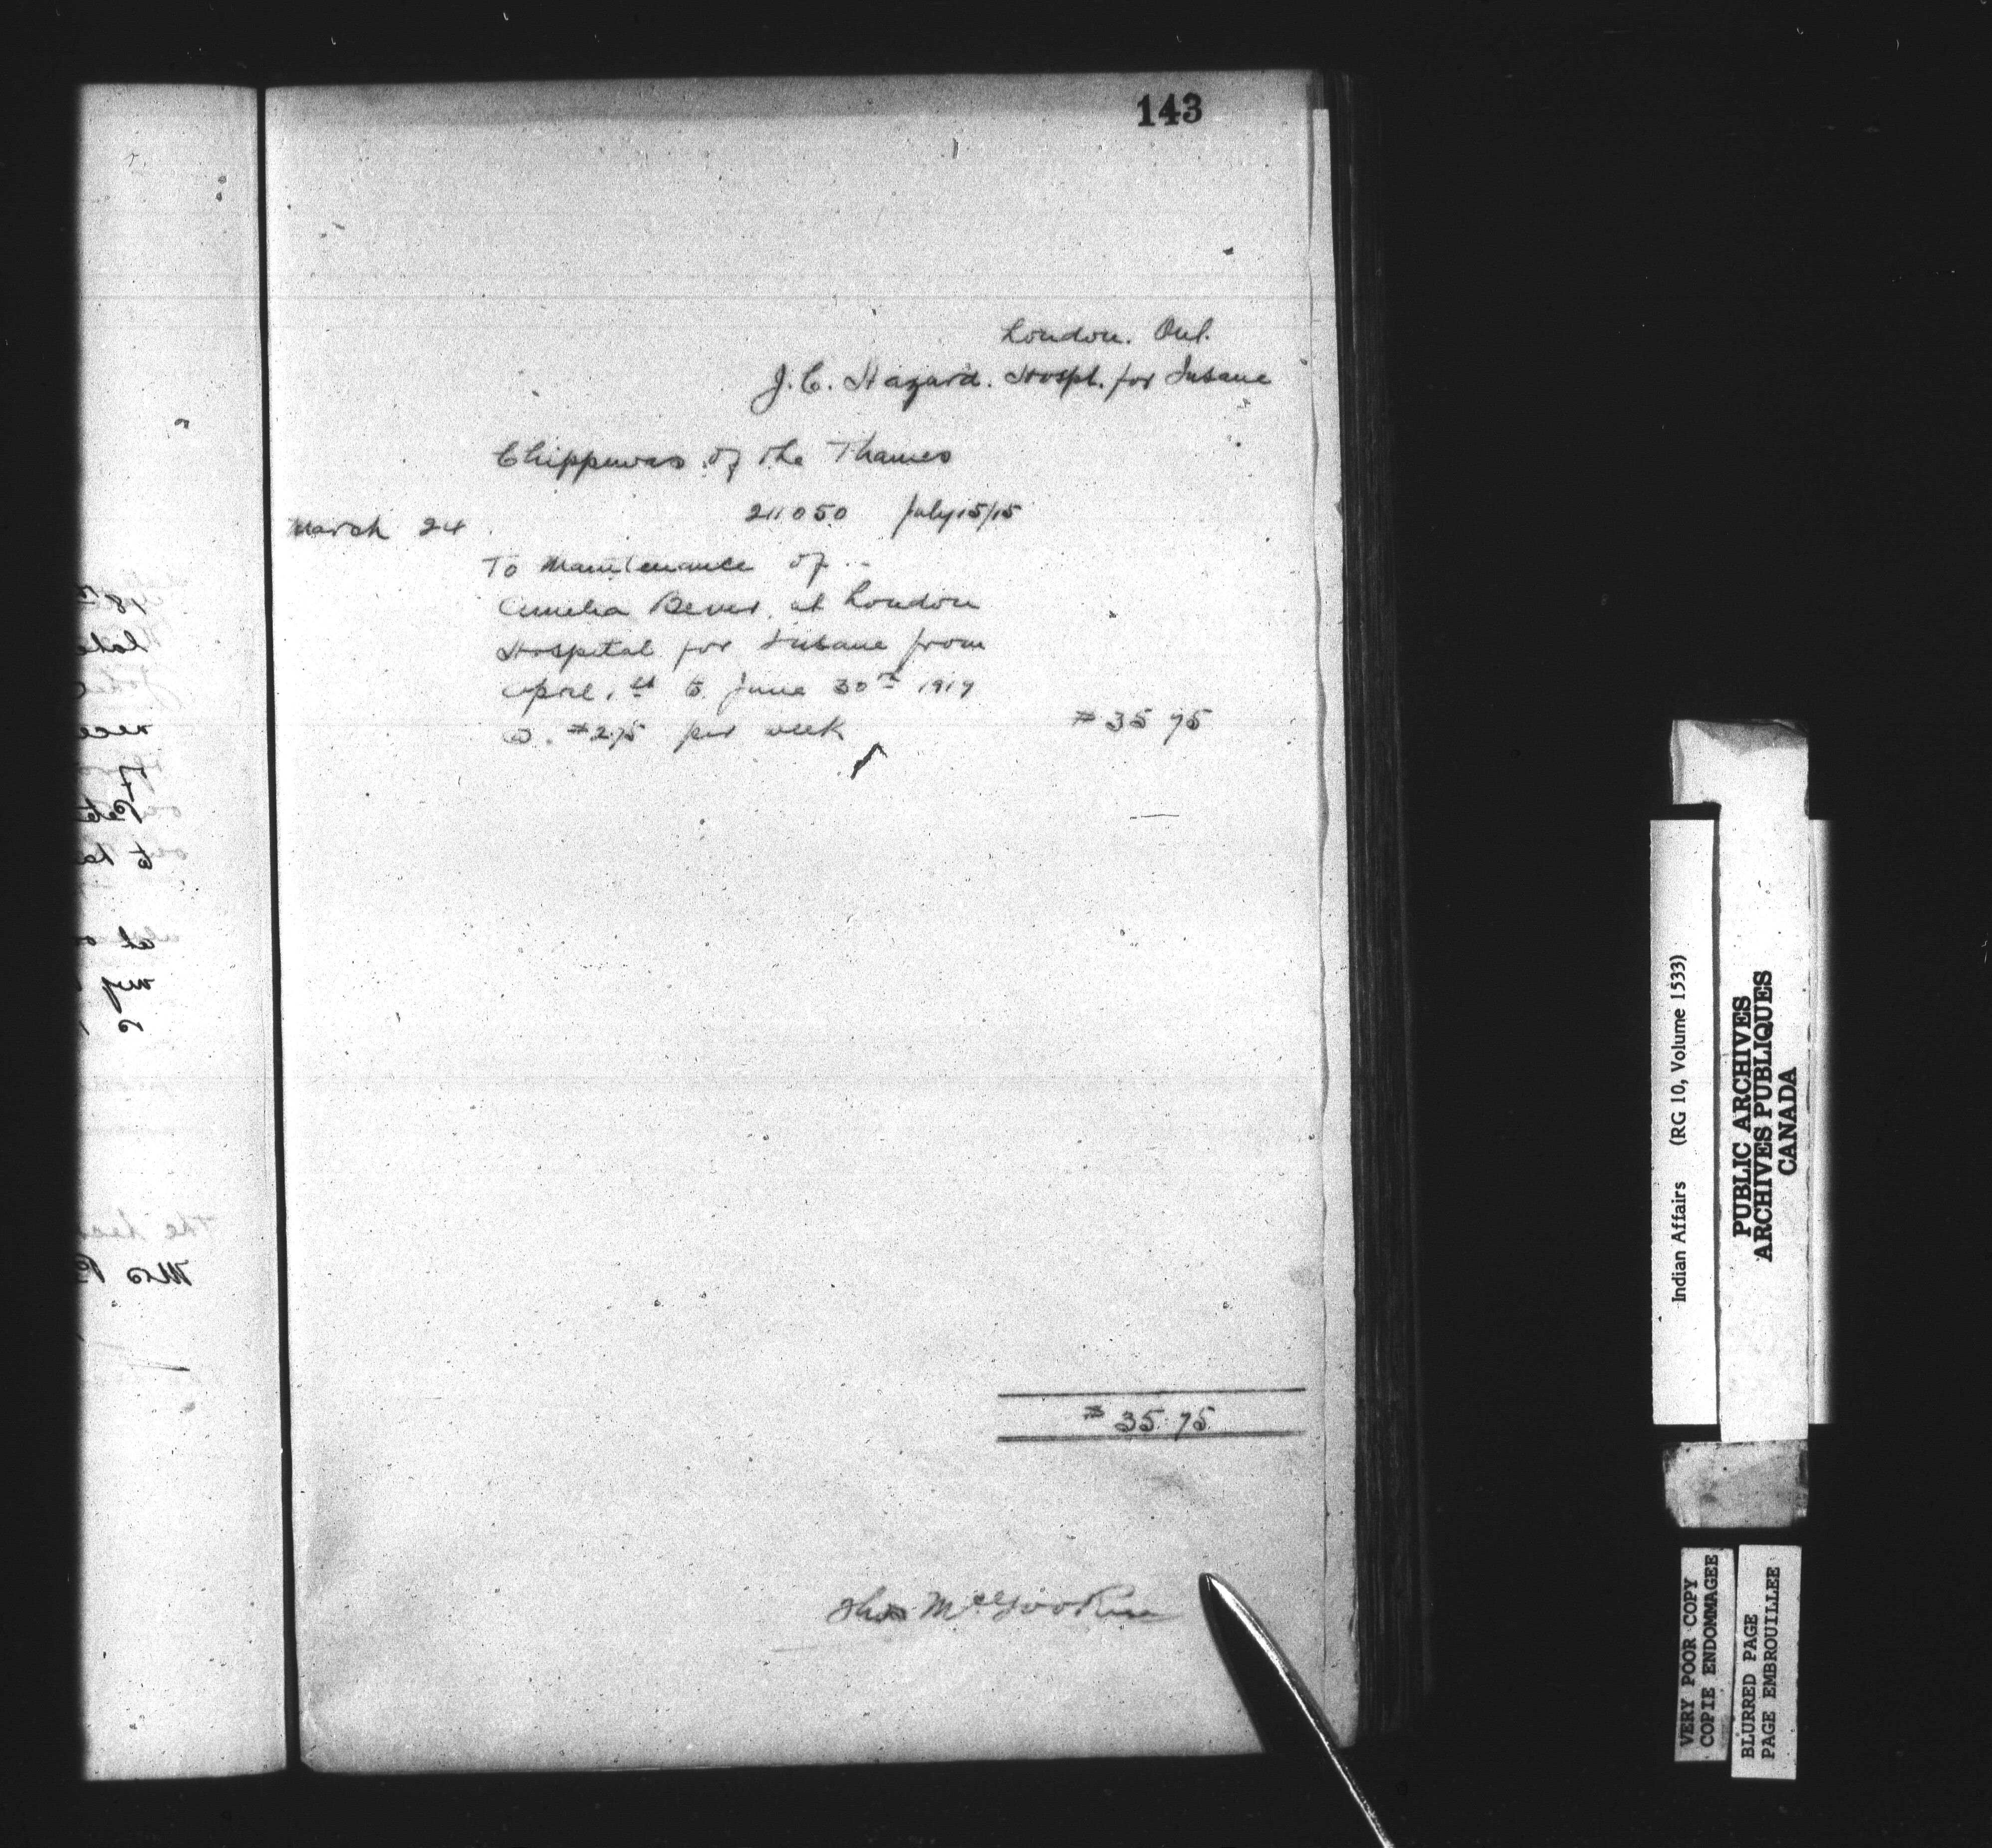 143
London. Ont.
J. C. Hazard. Hospt. for Insane
Chippewas of the Thames
211050 July 15/15
March 24
To Maintenance of
Amelia Bever. at London
Hospital for Insane from
April 1st to June 30th 1917
@. $2.75 per week $35 75
$35.75
Thos McGookin
Indian Affairs (RG 10, Volume 1533)
PUBLIC ARCHIVES
ARCHIVES PUBLIQUES
CANADA
VERY POOR COPY
COPIE ENDOMMAGEE
BLURRED PAGE
PAGE EMBROUILLEE